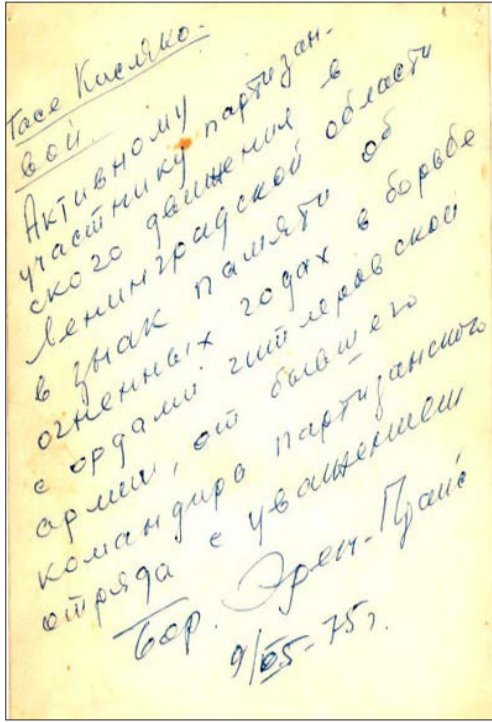 Тасе Кисляко-
вой
Активному
участнику партизан-
ского движения в
Ленинградской области
в знак памяти об
огненных годах в борьбе
с ордами гитлеровской
армии, от бывшего
командира партизанского
отряда с уважением
Бор. Эрен-Прайс
9/05-75г.